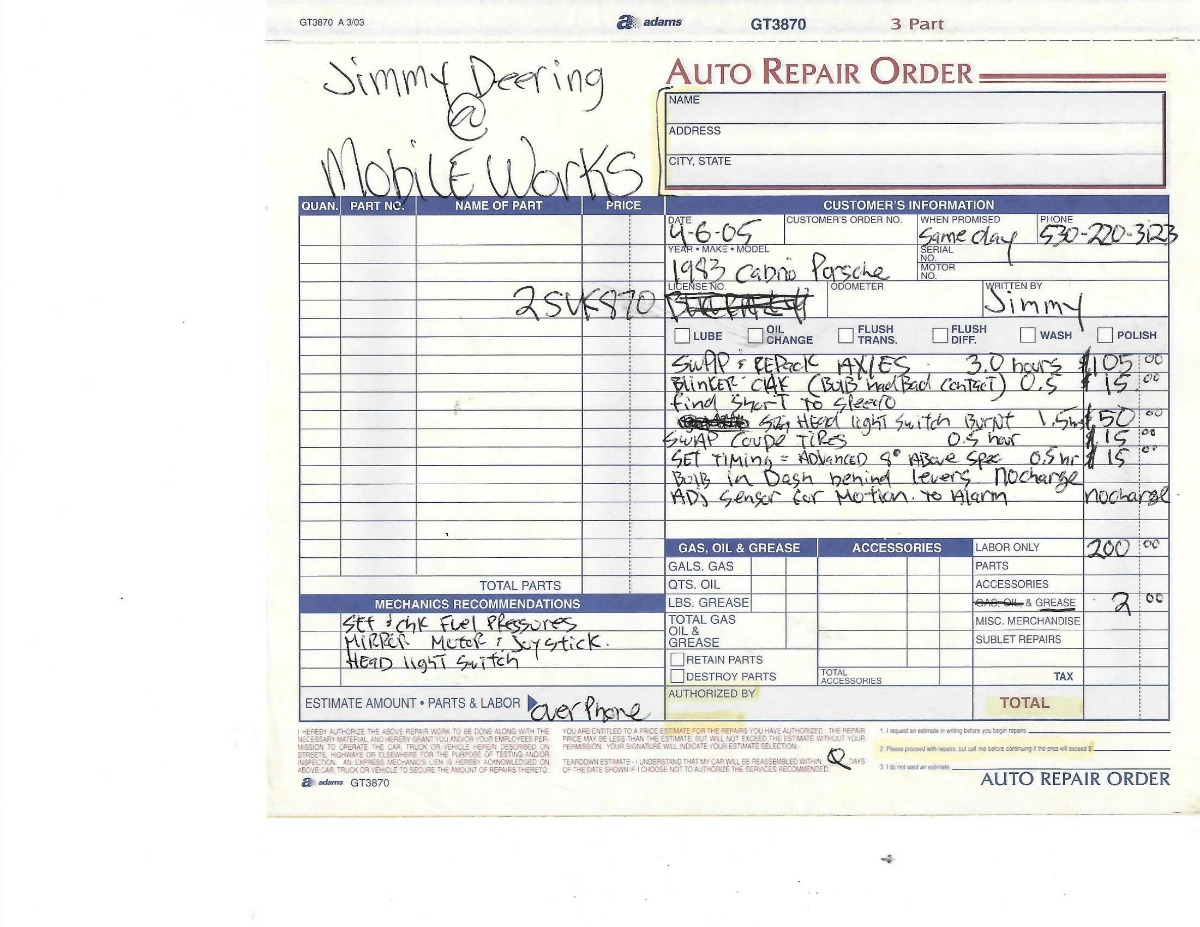 GT3870 A 3/03
adams
GT3870
3 Part
Jimmy Deering
@
MOBILE WORKS
AUTO REPAIR ORDER
NAME
ADDRESS
CITY, STATE
QUAN. PART NO. NAME OF PART PRICE
CUSTOMER'S INFORMATION
DATE 4-6-05
CUSTOMER'S ORDER NO.
WHEN PROMISED Same day
PHONE 530-220-3123
YEAR • MAKE • MODEL
1983 Cabrio Porsche
SERIAL NO.
MOTOR NO.
LICENSE NO.
2SVK870
ODOMETER
WRITTEN BY
Jimmy
LUBE OIL CHANGE FLUSH TRANS. FLUSH DIFF. WASH POLISH
SWAP & REPACK AXLES 3.0 hours $105 00
BLINKER CHK (BULB had Bad contact) 0.5 $15.00
find Short to Speedo
HEAD light Switch Burnt 1.5hr $50 00
SWAP COUPE TIRES 0.5 hour $15 00
SET TIMING = ADVANCED 8° ABove Spec 0.5 hr $15 00
BULB in Dash behind levers Nocharge
ADJ Sensor for Motion. to Alarm nocharge
GAS, OIL & GREASE
ACCESSORIES
LABOR ONLY 200 00
GALS. GAS
PARTS
QTS. OIL
ACCESSORIES
TOTAL PARTS
LBS. GREASE
GAS, OIL, & GREASE 2 00
MECHANICS RECOMMENDATIONS
TOTAL GAS OIL & GREASE
MISC. MERCHANDISE
SUBLET REPAIRS
SET & CHK FUEL PRESSURES
MIRRER MOTOR & Joystick.
HEAD light Switch
RETAIN PARTS
DESTROY PARTS
TOTAL ACCESSORIES
TAX
ESTIMATE AMOUNT • PARTS & LABOR over Phone
AUTHORIZED BY
TOTAL
I HEREBY AUTHORIZE THE ABOVE REPAIR WORK TO BE DONE ALONG WITH THE
NECESSARY MATERIAL, AND HEREBY GRANT YOU AND/OR YOUR EMPLOYEES PER-
MISSION TO OPERATE THE CAR, TRUCK OR VEHICLE HEREIN DESCRIBED ON
STREETS, HIGHWAYS OR ELSEWHERE FOR THE PURPOSE OF TESTING AND/OR
INSPECTION. AN EXPRESS MECHANIC'S LIEN IS HEREBY ACKNOWLEDGED ON
ABOVE CAR, TRUCK OR VEHICLE TO SECURE THE AMOUNT OF REPAIRS THERETO.
YOU ARE ENTITLED TO A PRICE ESTIMATE FOR THE REPAIRS YOU HAVE AUTHORIZED. THE REPAIR
PRICE MAY BE LESS THAN THE ESTIMATE, BUT WILL NOT EXCEED THE ESTIMATE WITHOUT YOUR
PERMISSION. YOUR SIGNATURE WILL INDICATE YOUR ESTIMATE SELECTION.
TEARDOWN ESTIMATE - I UNDERSTAND THAT MY CAR WILL BE REASSEMBLED WITHIN DAYS
OF THE DATE SHOWN IF I CHOOSE NOT TO AUTHORIZE THE SERVICES RECOMMENDED.
1. I request an estimate in writing before you begin repairs
2. Please proceed with repairs, but call me before continuing if the price will exceed $
3. I do not want an estimate
adams GT3870
AUTO REPAIR ORDER